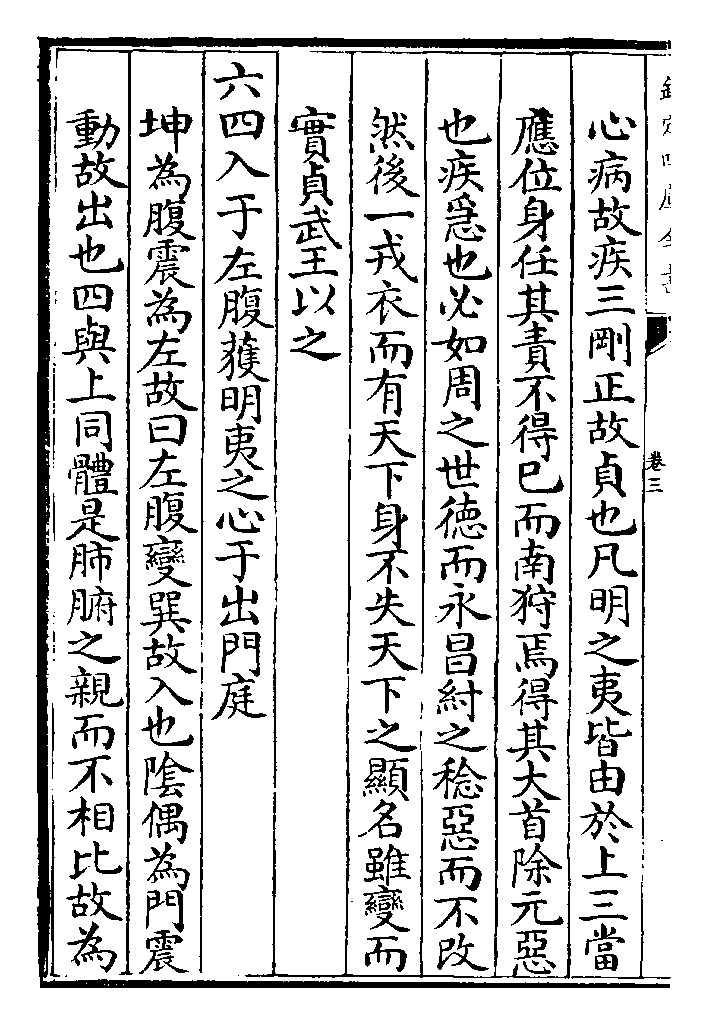 欽定四庫全書
卷三
心病故疾三剛正故貞也凡明之夷皆由於上三當
應位身任其責不得已而南狩焉得其大首除元惡
也疾急也必如周之世德而永昌紂之稔惡而不改
然後一戎衣而有天下身不失天下之顯名雖變而
實貞武王以之
六四入于左腹獲明夷之心于出門庭
坤為腹震為左故曰左腹變巽故入也陰偶為門震
動故出也四與上同體是肺腑之親而不相比故為